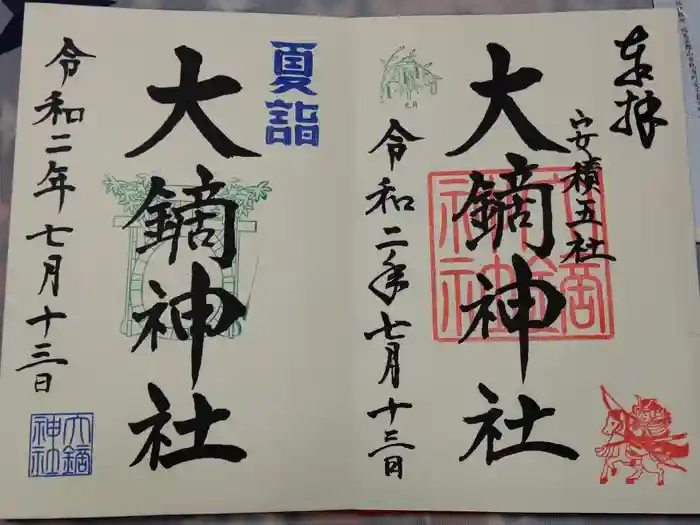 奉拝
安積五社
大鏑神社
大鏑神社
令和二年七月十三日
文月
夏詣
大鏑神社
令和二年七月十三日
大鏑神社